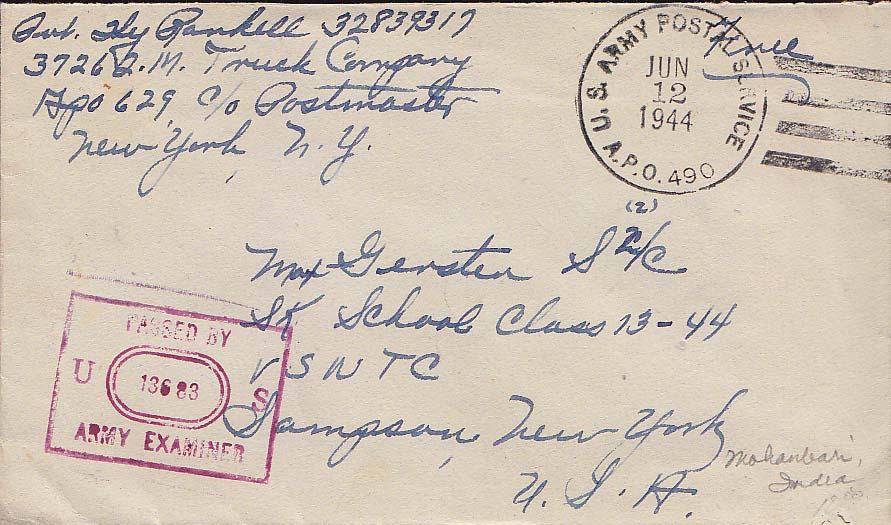 Pvt. Hy Rankell 32839317
3726 Q.M. Truck Company
Apo 629, c/o Postmaster
New York, N.Y.
Free
U.S. ARMY POSTAL SERVICE
JUN
12
1944
A.P.O. 490
(2)
Max Gerster S 2/c
SK School Class 13-44
USNTC
Sampson, New York
U.S.A.
PASSED BY
U 13683 S
ARMY EXAMINER
Mohanbari,
India